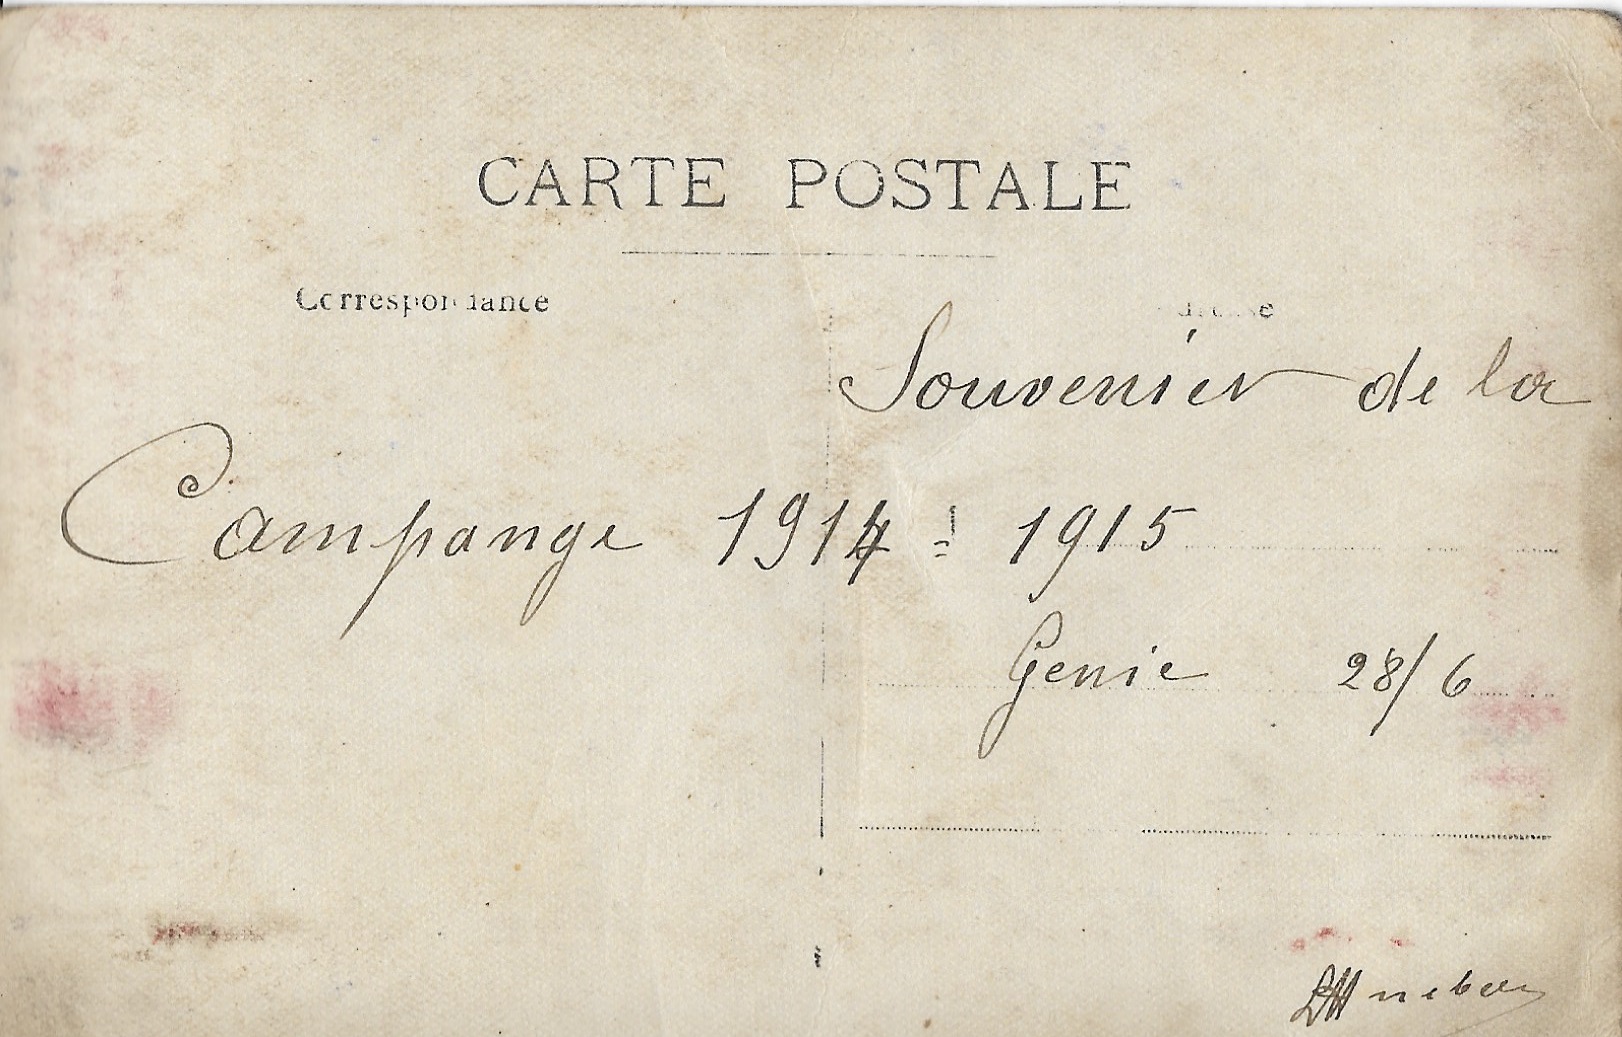 CARTE POSTALE
Correspondance
Souvenier de la
Campange 1914 = 1915
Genie 28/6